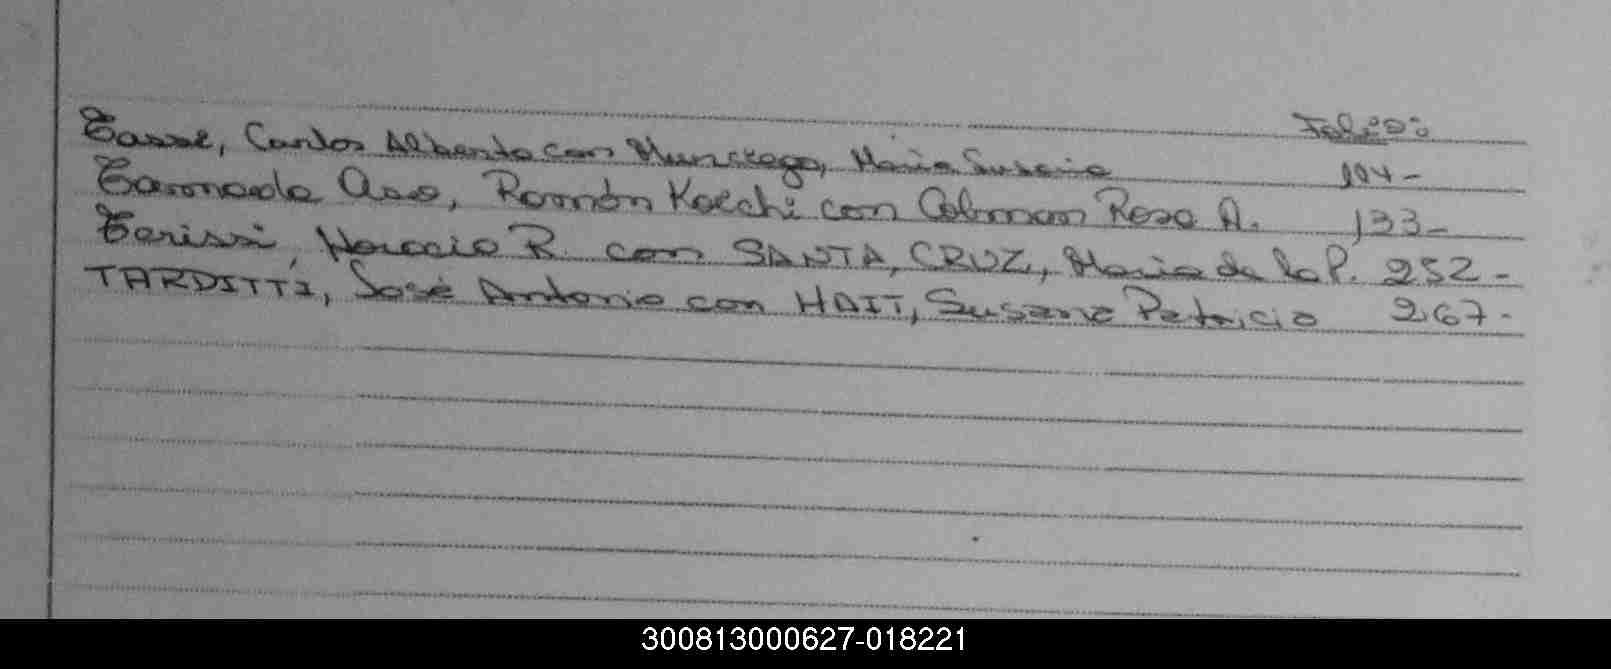 Folio:
Tasse, Carlos Alberto con Munstega, María Susana 104-
Taramoda Oso, Ramón Koechi con Colman Rosa A. 133-
Terissi, Horacio R. con SANTA, CRUZ, María de la P. 252-
TARDITTI, José Antonio con HAIT, Susana Patricia 267-
300813000627-018221